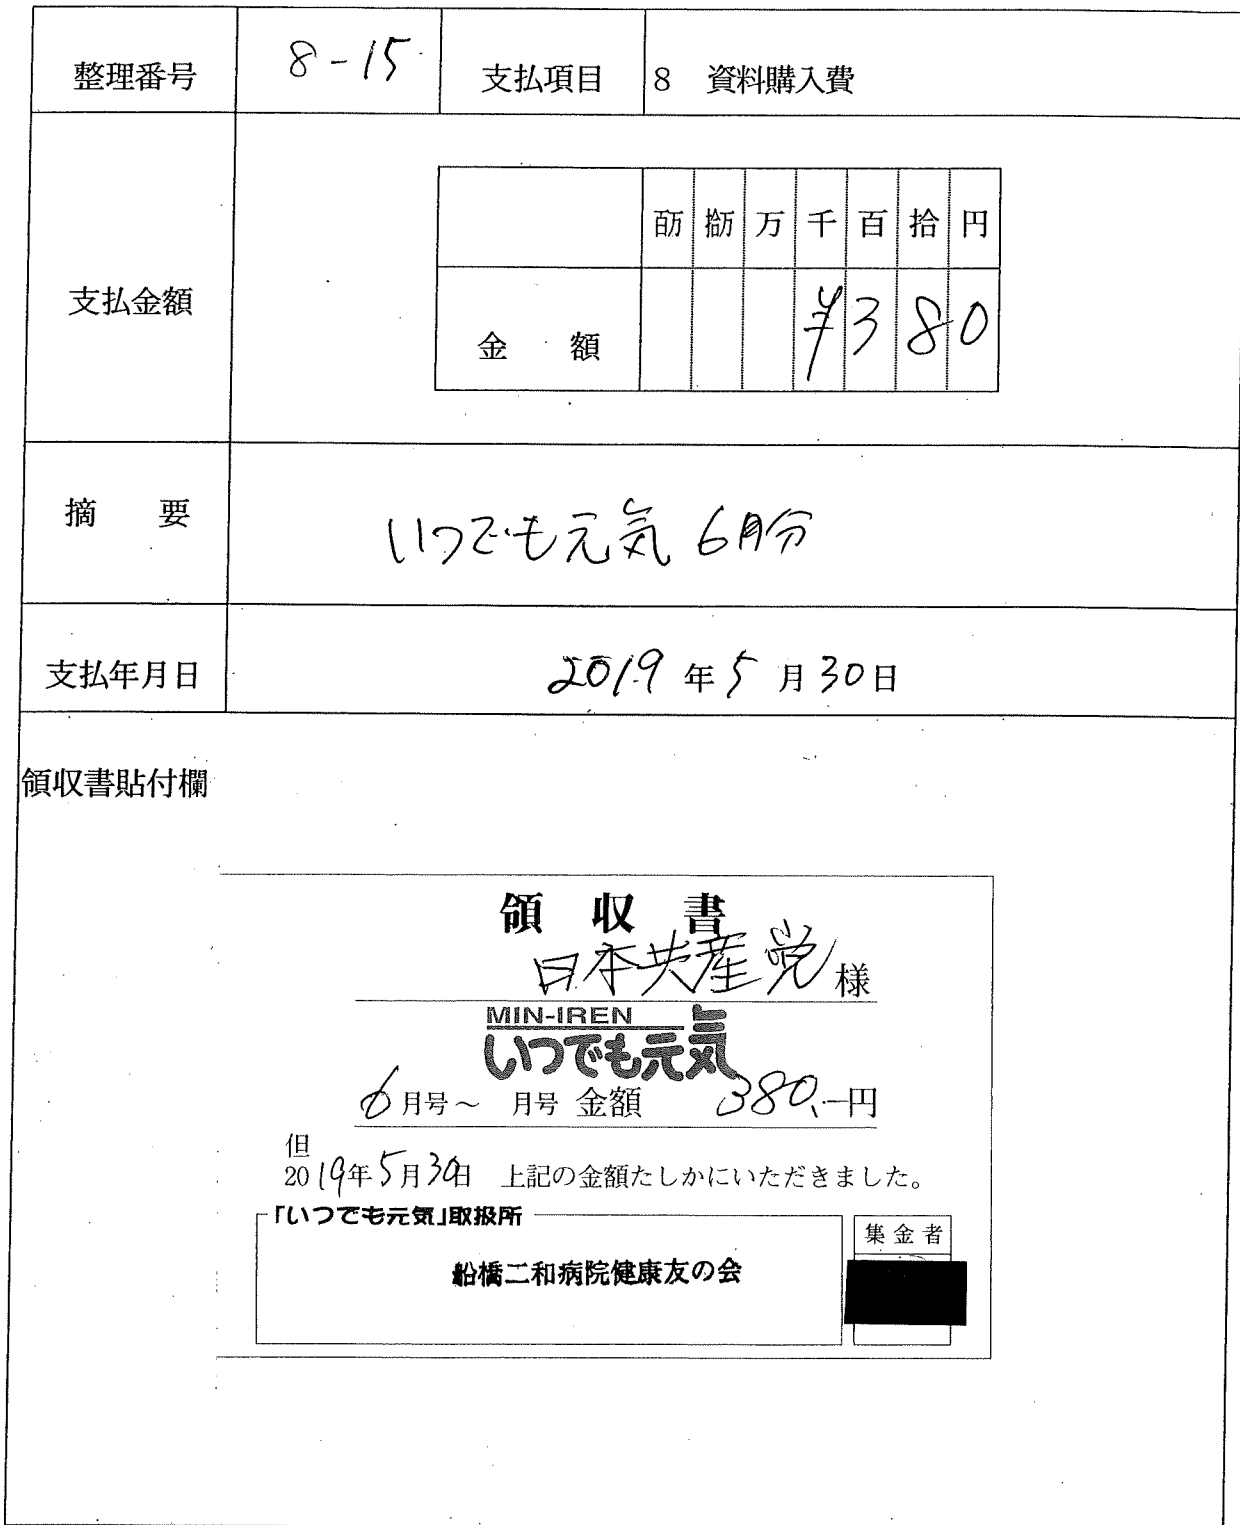 整理番号 8-15 支払項目 8 資料購入費
百万 拾万 万 千 百 拾 円
支払金額
金 額 ¥380
摘 要 いつでも元気 6月分
支払年月日 2019年5月30日
領収書貼付欄
領 収 書
日本共産党 様
MIN-IREN
いつでも元気
6月号~ 月号 金額 380.-円
但
2019年5月30日 上記の金額たしかにいただきました。
「いつでも元気」取扱所
集金者
船橋二和病院健康友の会